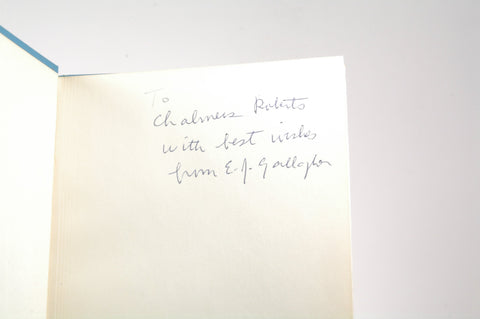 To
Chalmers Roberts
with best wishes
from E. J. Gallagher